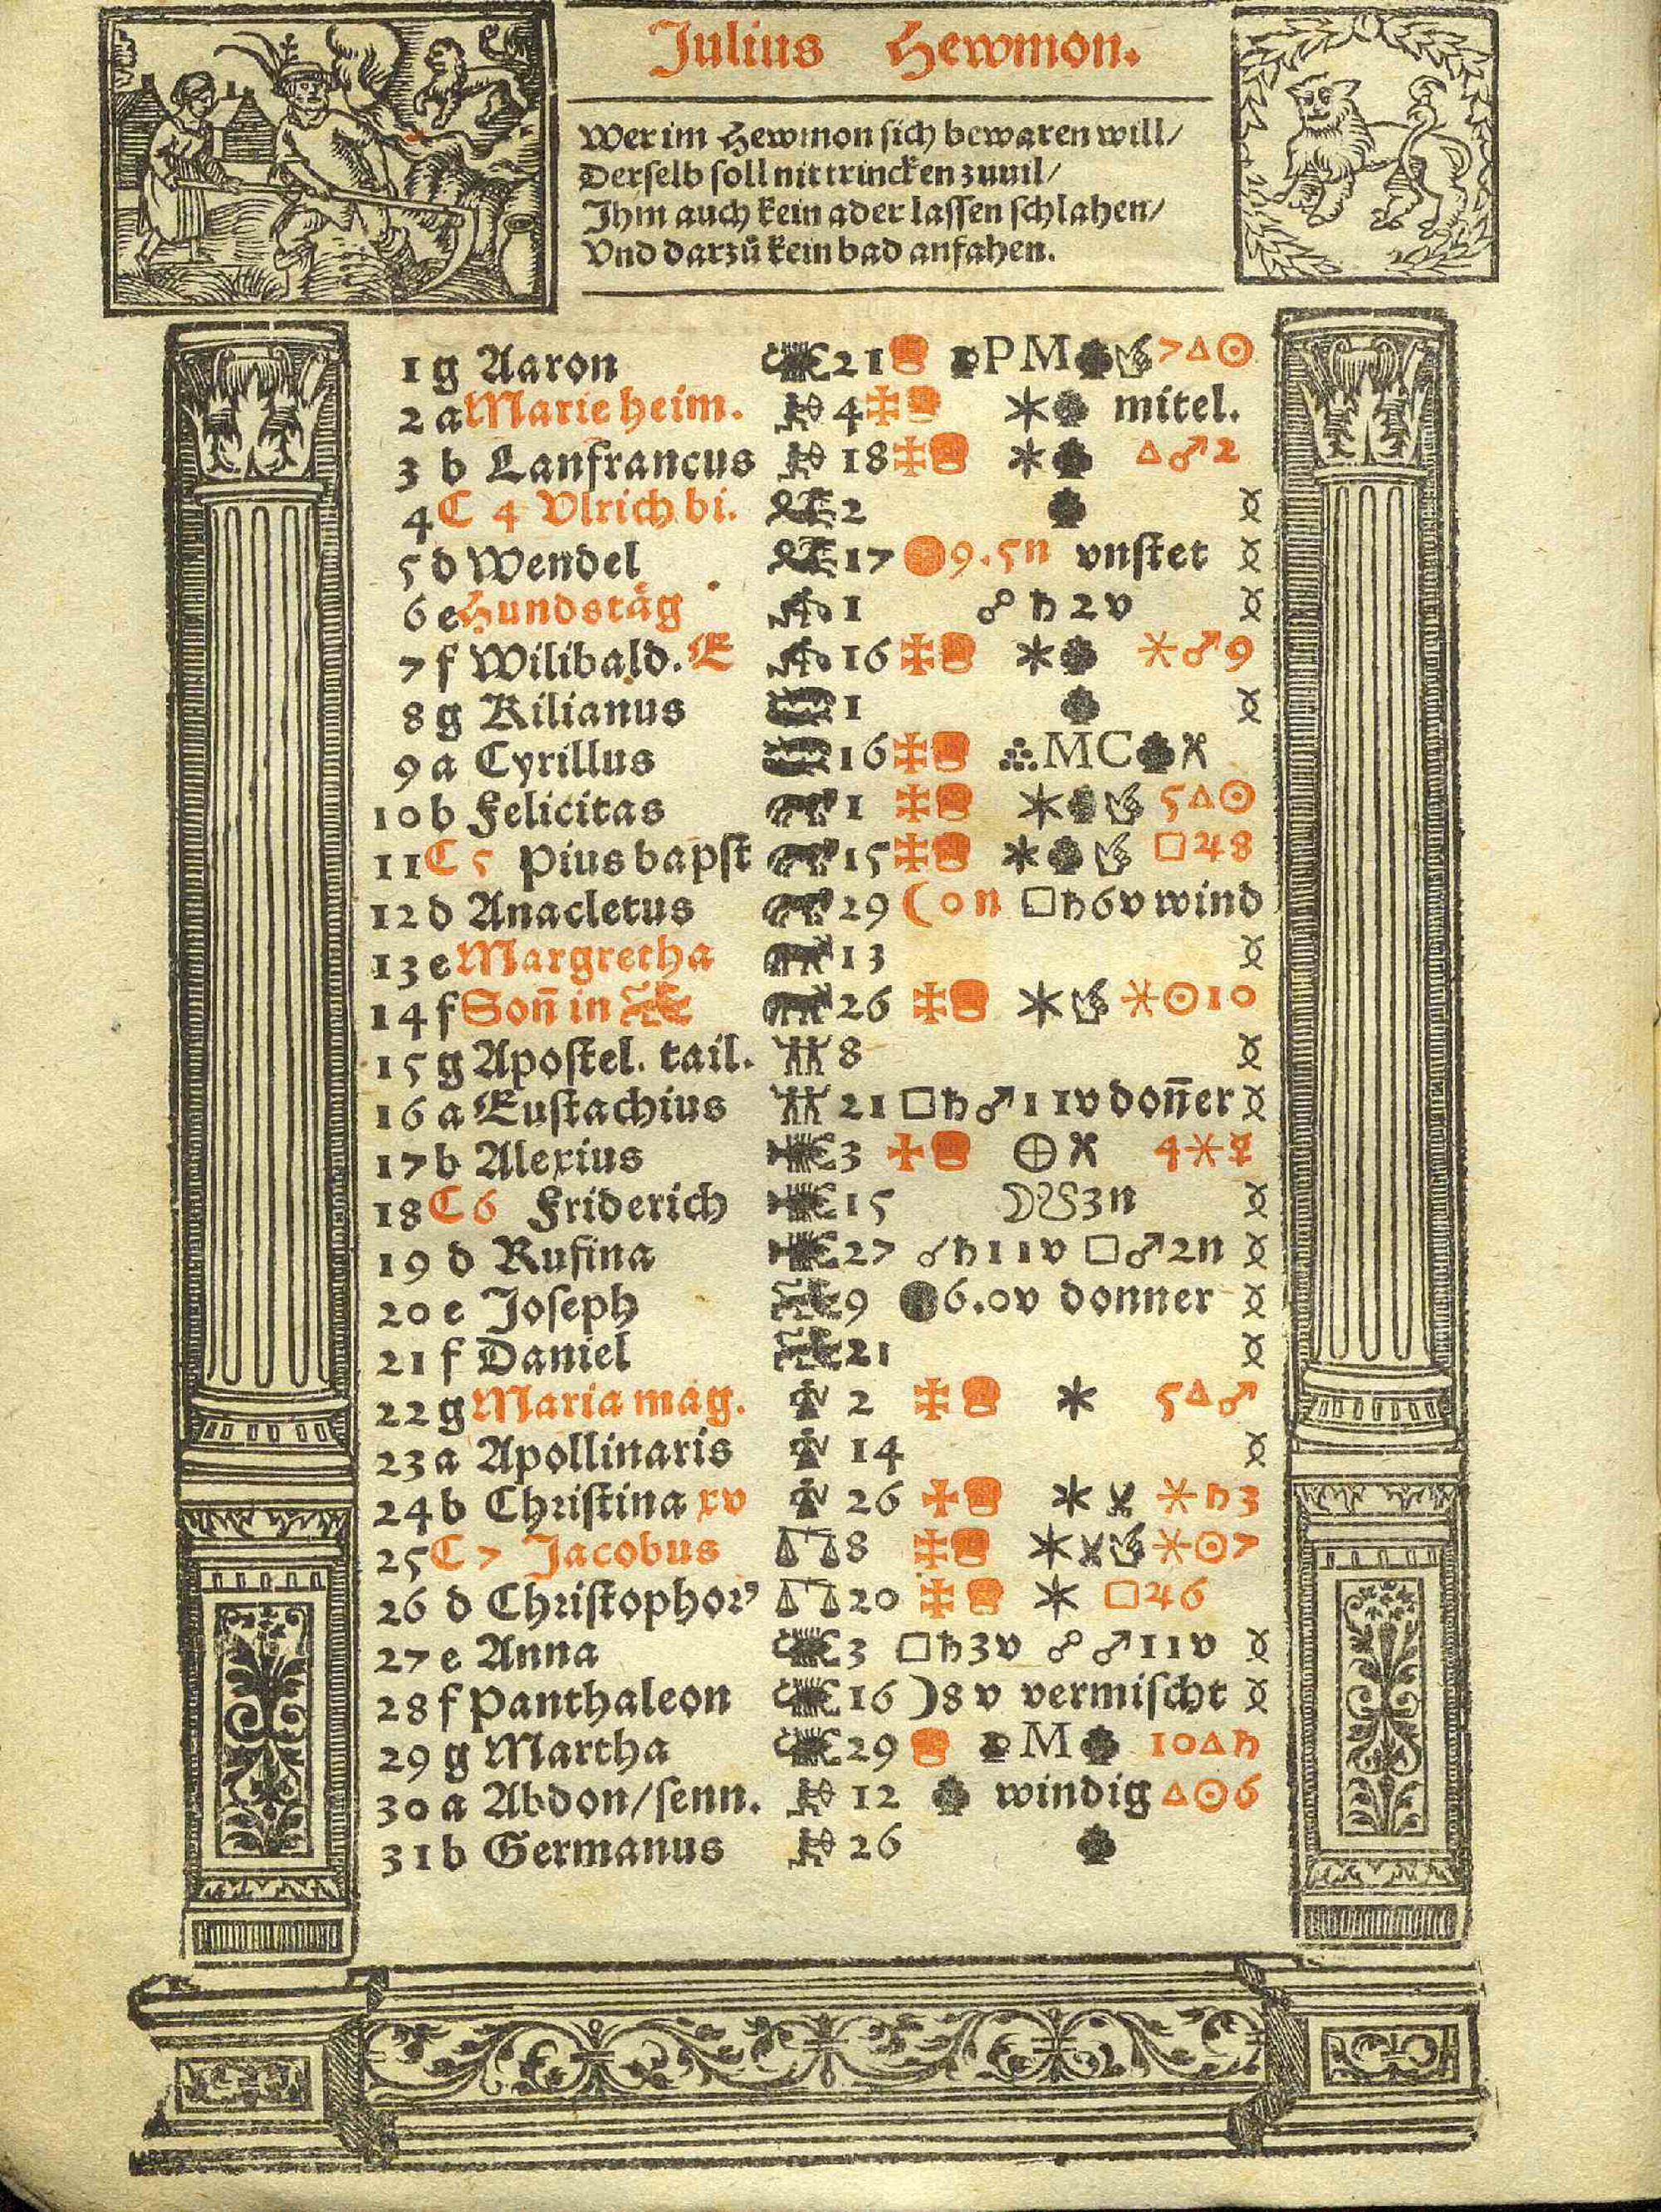 Julius Hewmon.
Wer im Hewmon sich bewaren will/
Derselb soll nit trincken zuuil/
Ihm auch kein ader lassen schlahen/
Vnd darzů kein bad anfahen.
1 g Aaron ♏ 21 P M 7 △ ☉
2 a Marie heim. ♐ 4 ✠ ✶ mitel.
3 b Lanfrancus ♐ 18 ✠ ✶ △ ♂ 2
4 C 4 Vlrich bi. ♑ 2
5 d Wendel ♑ 17 9.5n vnstet
6 e Hundstäg ♒ 1 ☍ ♄ 2 v
7 f Wilibald. E ♒ 16 ✠ ✶ ✶ ♂ 9
8 g Kilianus ♓ 1
9 a Cyrillus ♓ 16 ✠ M C
10 b Felicitas ♈ 1 ✠ ✶ 5 △ ☉
11 C 5 Pius bapst ♈ 15 ✠ ✶ □ ♃ 8
12 d Anacletus ♈ 29 ( 0 n □ ♄ 6 v wind
13 e Margretha ♉ 13
14 f Soñ in ♌ ♉ 26 ✠ ✶ ✶ ☉ 10
15 g Apostel. tail. ♊ 8
16 a Eustachius ♊ 21 □ ♄ ♂ 11 v doñer
17 b Alexius ♋ 3 ✠ ⊕ 4 ✶ ☿
18 C 6 Friderich ♋ 15 ☽ ☋ 3 n
19 d Rufina ♋ 27 ☌ ♄ 11 v □ ♂ 2 n
20 e Joseph ♌ 9 ● 6.0v donner
21 f Daniel ♌ 21
22 g Maria mag. ♍ 2 ✠ ✶ 5 △ ♂
23 a Apollinaris ♍ 14
24 b Christina xv ♍ 26 ✠ ✶ ✶ ♄ 3
25 C 7 Jacobus ♎ 8 ✠ ✶ ✶ ☉ 7
26 d Christophorꝰ ♎ 20 ✠ ✶ □ ♃ 6
27 e Anna ♏ 3 □ ♄ 3 v ☍ ♂ 11 v
28 f Panthaleon ♏ 16 ) 8 v vermischt
29 g Martha ♏ 29 M 10 △ ♄
30 a Abdon/senn. ♐ 12 windig △ ☉ 6
31 b Germanus ♐ 26